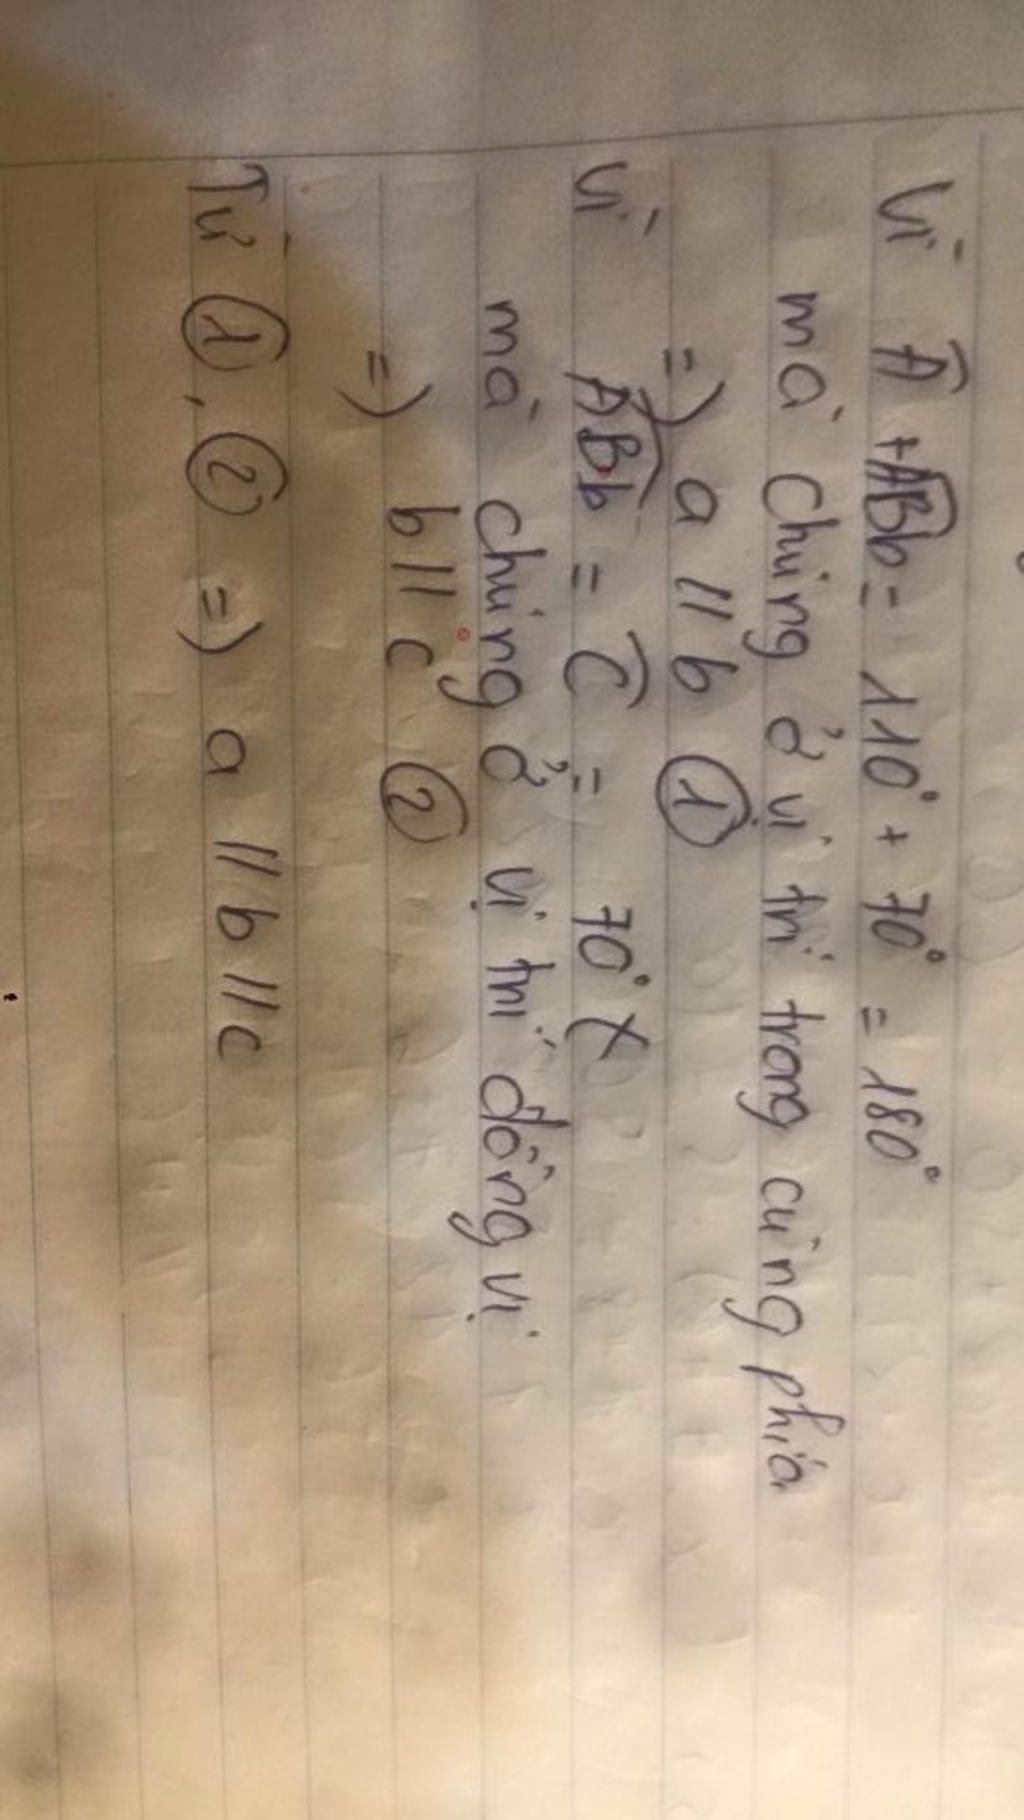 Vì Â + ABb = 110° + 70° = 180°
mà chúng ở vị trí trong cùng phía
=) a // b ①
Vì ABb = Ĉ = 70°
mà chúng ở vị trí đồng vị
=) b // c ②
Từ ①, ② =) a // b // c